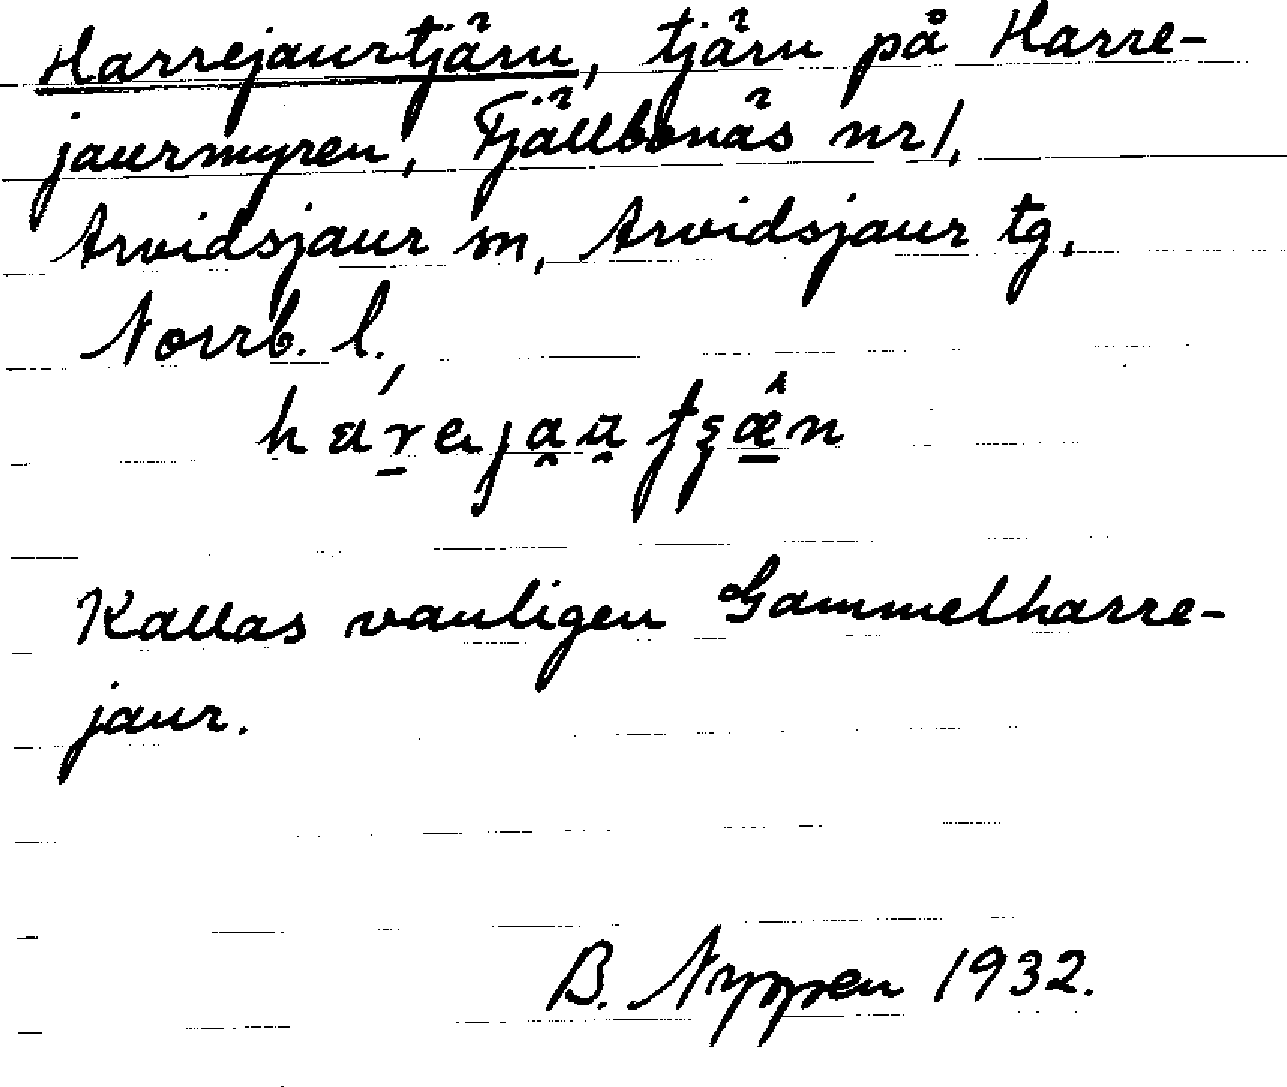 Harrejaurtjärn, tjärn på Harre-
jaurmyren, Fjällbonäs nr 1,
Arvidsjaur sn, Arvidsjaur tg,
Norrb. l.,
Kallas vanligen Gammelharre-
jaur.
B. Nyppen 1932.